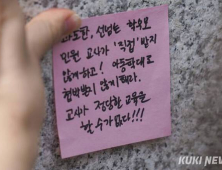 학부모
민원 교사가 '직접' 받지
않게 하고! 아동학대로
협박받지 않게 해라.
교사가 정당한 교육을
할 수가 없다!!!
KUKI NEWS